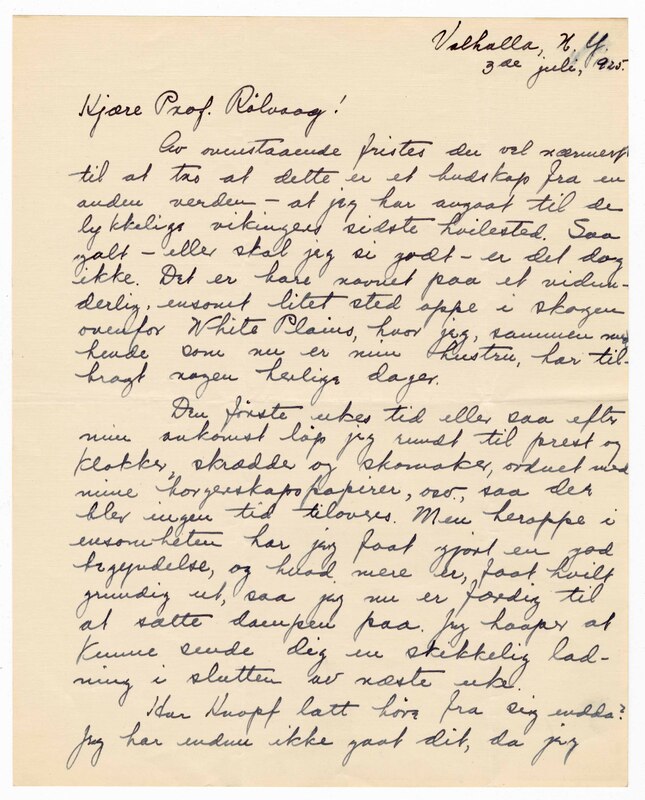 Valhalla, N. Y.
3de juli, 1925.
Kjære Prof. Rölvaag!
Av ovenstaaende fristes du vel nærmest
til at tro at dette er et budskap fra en
anden verden – at jeg har avgaat til de
lykkelige vikingers sidste hvilested. Saa
galt – eller skal jeg si godt – er det dog
ikke. Det er bare navnet paa et vidun-
derlig, ensomt litet sted oppe i skogen
ovenfor White Plains, hvor jeg, sammen med
hende som nu er min hustru, har til-
bragt nogen herlige dager.
Den förste ukes tid eller saa efter
min ankomst löp jeg rundt til prest og
klokker, skrædder og skomaker, ordnet med
mine borgerskapspapirer, osv., saa der
blev ingen tid tilovers. Men heroppe i
ensomheten har jeg faat gjort en god
begyndelse, og hvad mere er, faat hvilt
grundig ut, saa jeg nu er færdig til
at sætte dampen paa. Jeg haaper at
kunne sende dig en skikkelig lad-
ning i slutten av næste uke.
Har Knopf latt höre fra sig endda?
Jeg har endnu ikke gaat dit, da jeg